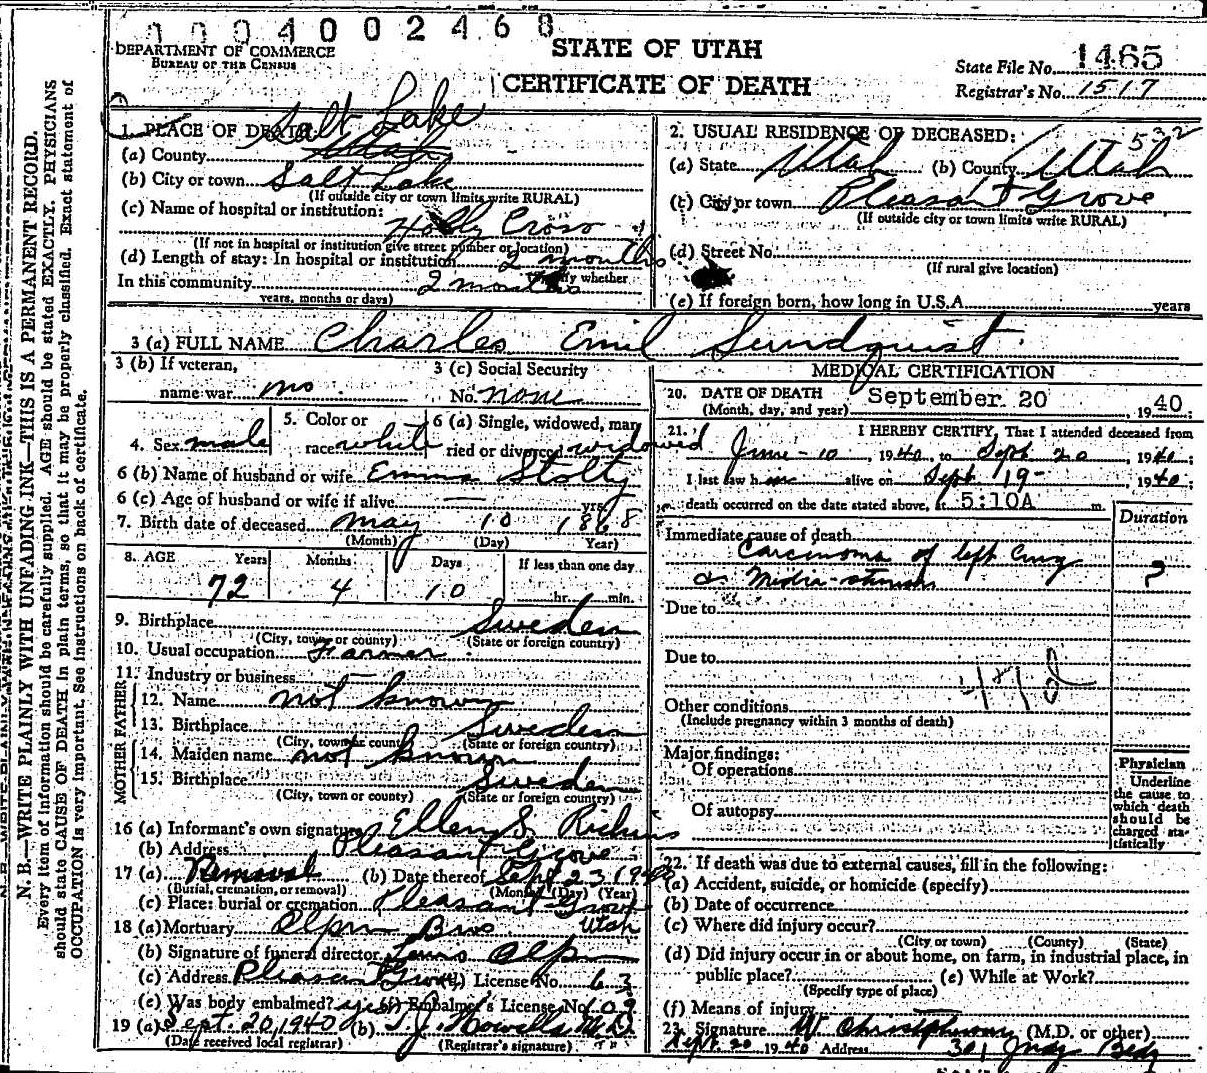 0004002460
DEPARTMENT OF COMMERCE
BUREAU OF THE CENSUS
STATE OF UTAH
CERTIFICATE OF DEATH
State File No. 1465
Registrar's No. 1517
N. B.—WRITE PLAINLY WITH UNFADING INK—THIS IS A PERMANENT RECORD.
Every item of information should be carefully supplied. AGE should be stated EXACTLY. PHYSICIANS
should state CAUSE OF DEATH in plain terms, so that it may be properly classified. Exact statement of
OCCUPATION is very important. See instructions on back of certificate.
1. PLACE OF DEATH: Salt Lake
(a) County Utah
(b) City or town Salt Lake
(If outside city or town limits write RURAL)
(c) Name of hospital or institution:
Holy Cross
(If not in hospital or institution give street number or location)
(d) Length of stay: In hospital or institution 2 months
(Specify whether
In this community 2 months
years, months or days)
2. USUAL RESIDENCE OF DECEASED: 532
(a) State Utah (b) County Utah
(c) City or town Pleasant Grove
(If outside city or town limits write RURAL)
(d) Street No.
(If rural give location)
(e) If foreign born, how long in U.S.A. years
3 (a) FULL NAME Charles Emil Sundquist
3 (b) If veteran,
name war no
3 (c) Social Security
No. none
4. Sex male
5. Color or
race white
6 (a) Single, widowed, mar
ried or divorced widowed
6 (b) Name of husband or wife Emma Stolty
6 (c) Age of husband or wife if alive — yrs.
7. Birth date of deceased May 10 1868
(Month) (Day) Year)
8. AGE Years Months Days If less than one day
72 4 10 hr. min.
9. Birthplace Sweden
(City, town or county) (State or foreign country)
10. Usual occupation Farmer
11. Industry or business
FATHER
12. Name not known
13. Birthplace Sweden
(City, town or county) (State or foreign country)
MOTHER
14. Maiden name not known
15. Birthplace Sweden
(City, town or county) (State or foreign country)
16 (a) Informant's own signature Ellen S. Richins
(b) Address Pleasant Grove
17 (a) Removal (b) Date thereof Sept 23 1940
(Burial, cremation, or removal) (Month) (Day) (Year)
(c) Place: burial or cremation Pleasant Grove
Utah
18 (a) Mortuary Olpin Bros
(b) Signature of funeral director Olpin
(c) Address Pleasant Grove (d) License No. 63
(e) Was body embalmed? yes (f) Embalmer's License No. 109
19 (a) Sept. 20, 1940 (b) T. J. Howells M.D.
(Date received local registrar) (Registrar's signature)
MEDICAL CERTIFICATION
20. DATE OF DEATH
(Month, day, and year) September 20, 1940;
21. I HEREBY CERTIFY, That I attended deceased from
June - 10, 1940, to Sept 20, 1940;
I last saw him alive on Sept 19 - 1940;
death occurred on the date stated above, at 5:10A m.
Duration
Immediate cause of death
Carcinoma of left lung
?
Due to
Due to
Other conditions
(Include pregnancy within 3 months of death)
Major findings:
Of operations
Of autopsy
Physician
Underline
the cause to
which death
should be
charged sta-
tistically
22. If death was due to external causes, fill in the following:
(a) Accident, suicide, or homicide (specify)
(b) Date of occurrence
(c) Where did injury occur?
(City or town) (County) (State)
(d) Did injury occur in or about home, on farm, in industrial place, in
public place? (e) While at Work?
(Specify type of place)
(f) Means of injury
23. Signature W Christopherson (M.D. or other)
Sept. 20 1940 Address 301 Judge Bldg